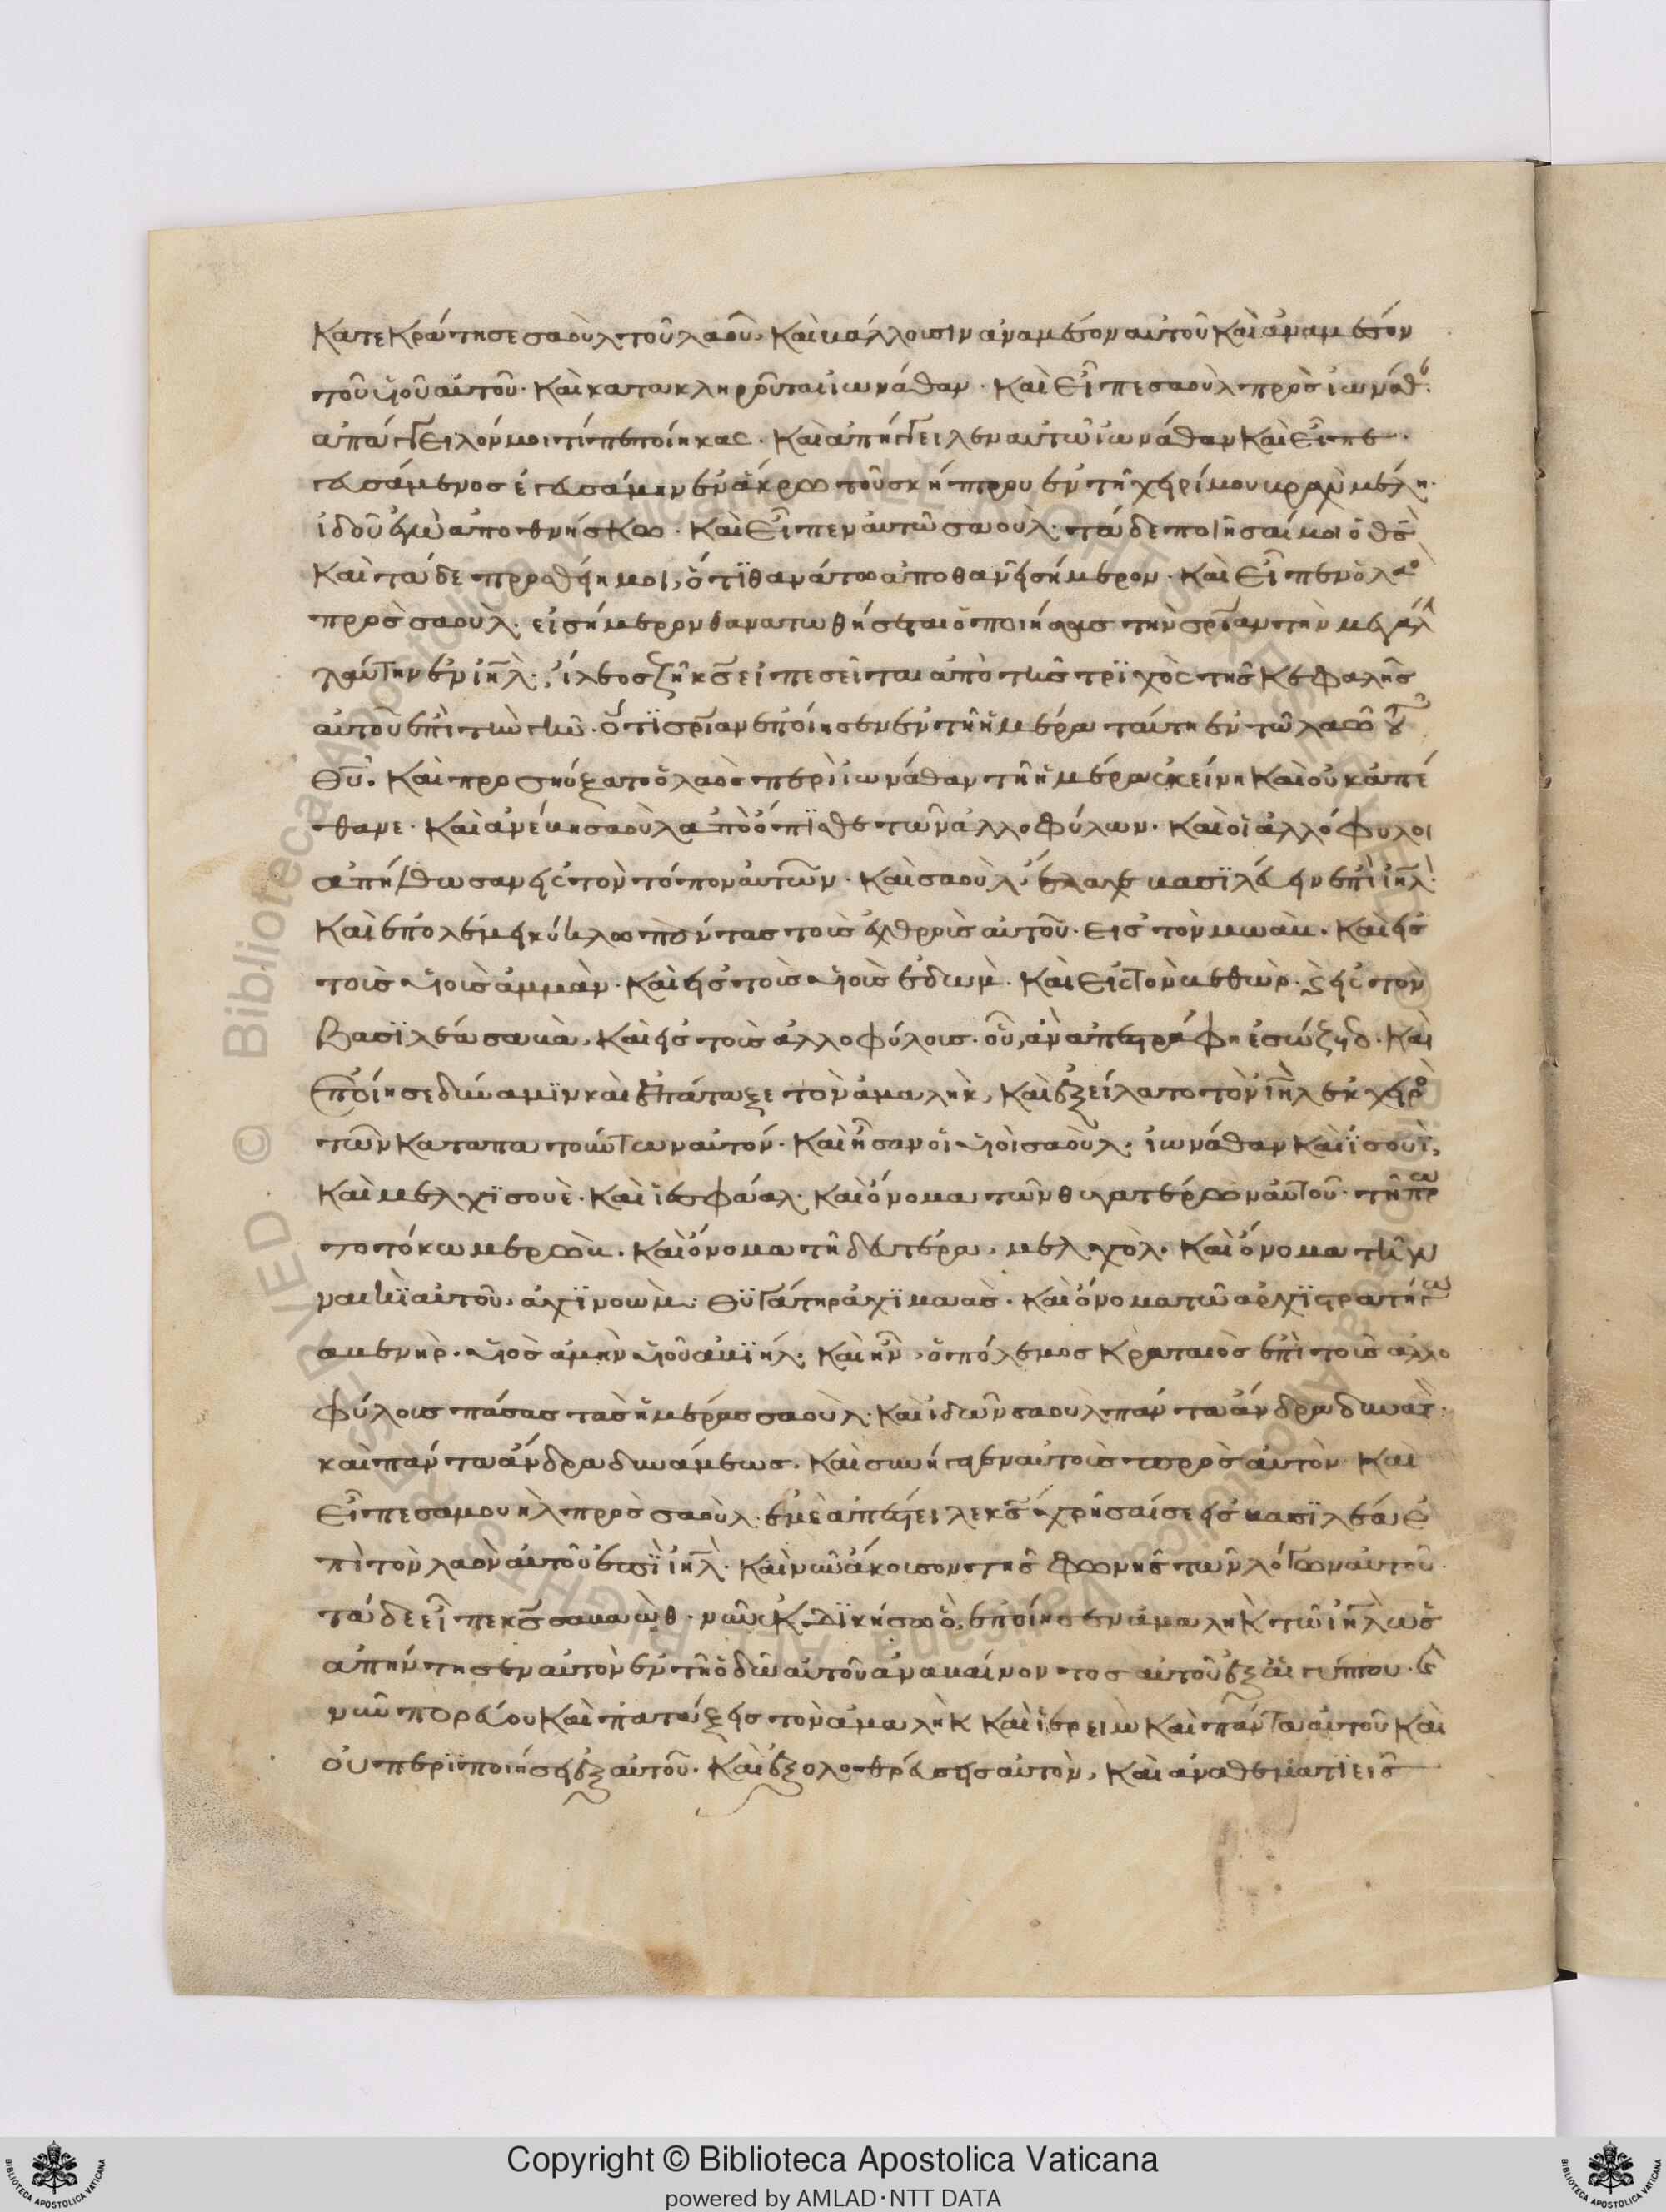 κατεκράτησε σαοὺλ τοῦ λαοῦ, καὶ βάλλουσιν ἀναμέσον αὐτοῦ καὶ ἀναμέσον
τοῦ υἱοῦ αὐτοῦ· καὶ κατακληροῦται ἰωνάθαν· καὶ εἶπε σαοὺλ πρὸς ἰωνάθ
ἀπάγγειλόν μοι τί πεποίηκας· καὶ ἀπήγγειλεν αὐτῶ ἰωνάθαν καὶ εἶπε·
γευσάμενος ἐγευσάμην ἐν ἄκρω τοῦ σκήπτρου ἐν τῆ χειρί μου βραχὺ μέλι·
ἰδοῦ ἐγὼ ἀποθνήσκω· καὶ εἶπεν αὐτῶ σαοὺλ· τάδε ποιῆσαί μοι ὁ θς
καὶ τάδε προσθείη μοι, ὅτι θανάτω ἀποθανῆ σήμερον· καὶ εἶπεν ὁ λαο
πρὸς σαοὺλ· εἰ σήμερον θανατωθήσεται ὁ ποιήσας τὴν σρίαν τὴν μεγάλ
ταύτην ἐν ιηλ· ἵλεος ζῆ κς εἰ πεσεῖται ἀπὸ τῆς τριχὸς τῆς κεφαλῆς
αὐτοῦ ἐπὶ τὴν γῆν· ὅτι σρίαν ἐποίησεν ἐν τῆ ἡμέρα ταύτη ἐν τῶ λαῶ τοῦ
θυ· καὶ προσηύξατο ὁ λαὸς περὶ ἰωνάθαν τῆ ἡμέρα ἐκείνη καὶ οὐκ ἀπέ
θανε· καὶ ἀνέβη σαοὺλ ἀπὸ ὄπισθε τῶν ἀλλοφύλων· καὶ οἱ ἀλλόφυλοι
ἀπήλθωσαν εἰς τὸν τόπον αὐτῶν· καὶ σαοὺλ ἔλαχε βασιλεύειν ἐπὶ ιηλ·
καὶ ἐπολέμει κύκλω πάντας τοὺς ἐχθροὺς αὐτοῦ· εἰς τὸν μωάβ· καὶ εἰς
τοὺς υἱοὺς ἀμμὰν· καὶ εἰς τοὺς υἱοὺς ἐδωμ· καὶ εἰς τὸν βεθὼρ· καὶ εἰς τὸν
βασιλέα σαβὰ, καὶ εἰς τοὺς ἀλλοφύλους· οὗ, ἂν ἀπεστράφη ἐσώζετο· καὶ
ἐποίησε δύναμιν καὶ ἐπάταξε τὸν ἀμαλὴκ, καὶ ἐξείλατο τὸν ιηλ ἐκ χειρο
τῶν καταπατούντων αὐτόν· καὶ ἦσαν οἱ υἱοὶ σαοὺλ· ἰωνάθαν καὶ ἰσουὶ,
καὶ μελχισουὲ· καὶ ἰσφάαλ· καὶ ὄνομα τῶν θυγατέρων αὐτοῦ· τῆ πρω
τοτόκω μερὼβ· καὶ ὄνομα τῆ δευτέρα, μελχὸλ· καὶ ὄνομα τῆ γυ
ναικὶ αὐτοῦ, ἀχινοὼμ· θυγάτηρ ἀχιμαὰς· καὶ ὄνομα τῶ ἀρχιστρατήγω
ἀβενὴρ· υἱὸς ἀμὴν υἱοῦ ἀβιήλ· καὶ ἦν, ὁ πόλεμος κραταιὸς ἐπὶ τοὺς ἀλλο
φύλους πάσας τὰς ἡμέρας σαοὺλ· καὶ ἰδὼν σαοὺλ πάντα ἄνδρα δυνατ·
καὶ πάντα ἄνδρα δυνάμεως· καὶ συνήγαγεν αὐτοὺς πρὸς αὐτὸν· καὶ
εἶπε σαμουὴλ πρὸς σαοὺλ· ἐμὲ ἀπέστειλε κς χρῆσαί σε εἰς βασιλέα ἐ
πὶ τὸν λαὸν αὐτοῦ ἐπὶ ιηλ· καὶ νῦν ἄκουσον τῆς φωνῆς τῶν λόγων αὐτοῦ·
τάδε εἶπε κς σαβαὼθ· νῦν ἐκδικήσω ὃ, ἐποίησεν ἀμαλὴκ τῶ ιηλ ὡς
ἀπήντησεν αὐτὸν ἐν τῆ ὁδῶ αὐτοῦ ἀναβαίνοντος αὐτοῦ ἐξ αἰγύπτου· καὶ
νῦν πορεύου καὶ πατάξεις τὸν ἀμαλὴκ καὶ ἱερειμ καὶ πάντα αὐτοῦ καὶ
οὐ περιποιήσει ἐξ αὐτοῦ· καὶ ἐξολοθρεύσεις αὐτὸν, καὶ ἀναθεματιεῖς
Copyright © Biblioteca Apostolica Vaticana
powered by AMLAD·NTT DATA